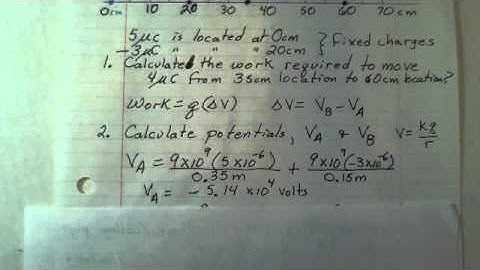 0cm 10 20 30 40 50 60 70cm
5μC is located at 0cm } fixed charges
-3μC " " " 20cm
1. Calculated the work required to move
4μC from 35cm location to 60cm location?
Work = q(ΔV) ΔV = VB - VA
2. Calculate potentials, VA & VB V = kq/r
VA = 9×10^9(5×10^-6)/0.35m + 9×10^9(-3×10^-6)/0.15m
VA = -5.14 ×10^4 volts